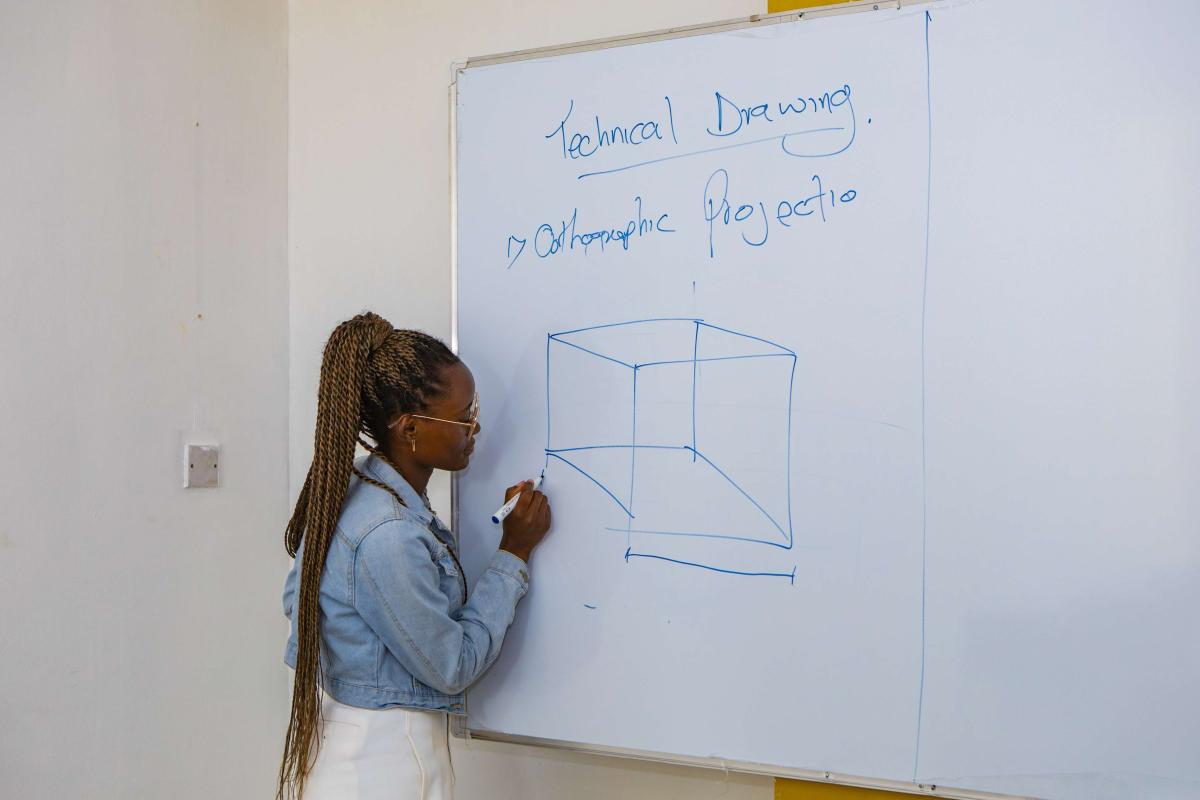 Technical Drawing.
1> Orthographic Projectio